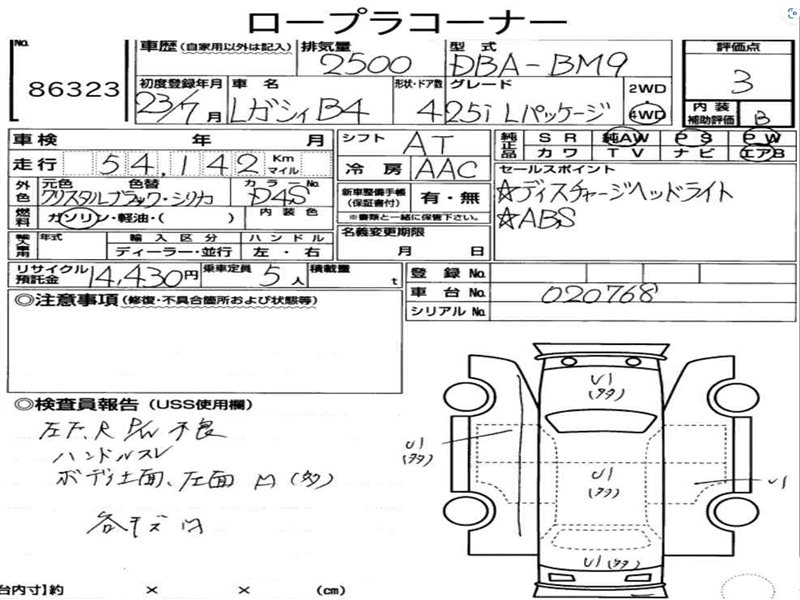 ロープラコーナー
No. 86323
車歴 (自家用以外は記入) 排気量 2500 型式 DBA-BM9 評価点 3
初度登録年月 23/7月 車名 レガシィB4 形状・ドア数 4 グレード 2.5i Lパッケージ 2WD 4WD 内装補助評価 B
車検 年 月 シフト AT 純正品 SR 純AW PS PW
カワ TV ナビ エアB
走行 54,142 Km マイル 冷房 AAC セールスポイント
外色 元色 色替 カラーNo.
クリスタルブラック・シリカ D4S 新車整備手帳 (保証書付) 有・無 ☆ディスチャージヘッドライト
燃料 ガソリン・軽油・( ) 内装色 ※書類と一緒に保管下さい。 ☆ABS
輸入車用 年式 輸入区分 ハンドル 名義変更期限
ディーラー・並行 左・右 月 日
リサイクル預託金 14,430円 乗車定員 5人 積載量 t 登録No.
車台No. 020768
シリアルNo.
◎注意事項 (修復・不具合箇所および状態等)
◎検査員報告 (USS使用欄)
左F、R P/W 不良
ハンドルスレ
ボディ上面、左面 凹 (多)
各キズ凹
U1
(多多)
U1
(多多)
U1
(多多)
U1
U1(多多)
台内寸]約 × × (cm)